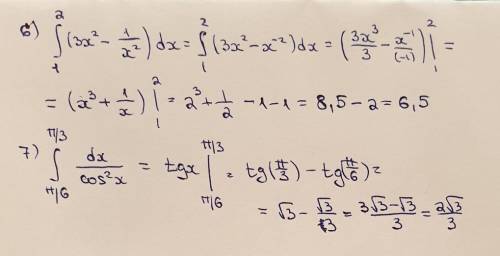 6) ∫₁² (3x² - 1/x²) dx = ∫₁² (3x² - x⁻²) dx = (3x³/3 - x⁻¹/(-1)) |₁² =
= (x³ + 1/x) |₁² = 2³ + 1/2 - 1 - 1 = 8,5 - 2 = 6,5
7) ∫_{π/6}^{π/3} dx/cos²x = tgx |_{π/6}^{π/3} = tg(π/3) - tg(π/6) =
= √3 - √3/3 = (3√3 - √3)/3 = 2√3/3